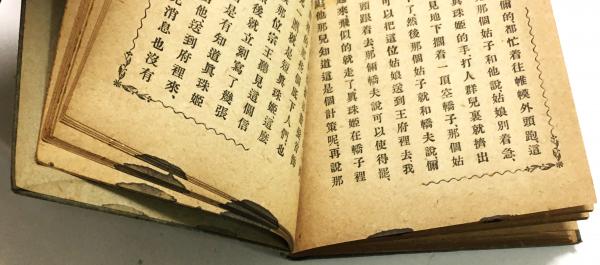 倆的都忙着往帷幙外頭跑這
那個姑子和他說姑娘別着急、
眞珠姬的手打人群兒裏就擠出
見地下擱着一頂空轎子那個姑
了然後那個姑子就和轎夫說倆
可以把這位姑娘送到王府裡去我
頭跟着去那倆轎夫說可以使得罷、
起來飛似的就走了眞珠姬在轎子裡
他那兒知道這是個計策呢、再說那
底下人們也
眞珠姬這
那位宗王聽見這個信
後就立刻寫了幾張
是有知道眞珠姬
他送到府裡來、
消息也沒有